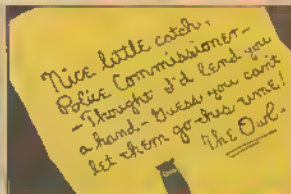 Nice little catch,
Police Commissioner-
-Thought I'd lend you
a hand-Guess you can't
let them go this time!
The Owl.